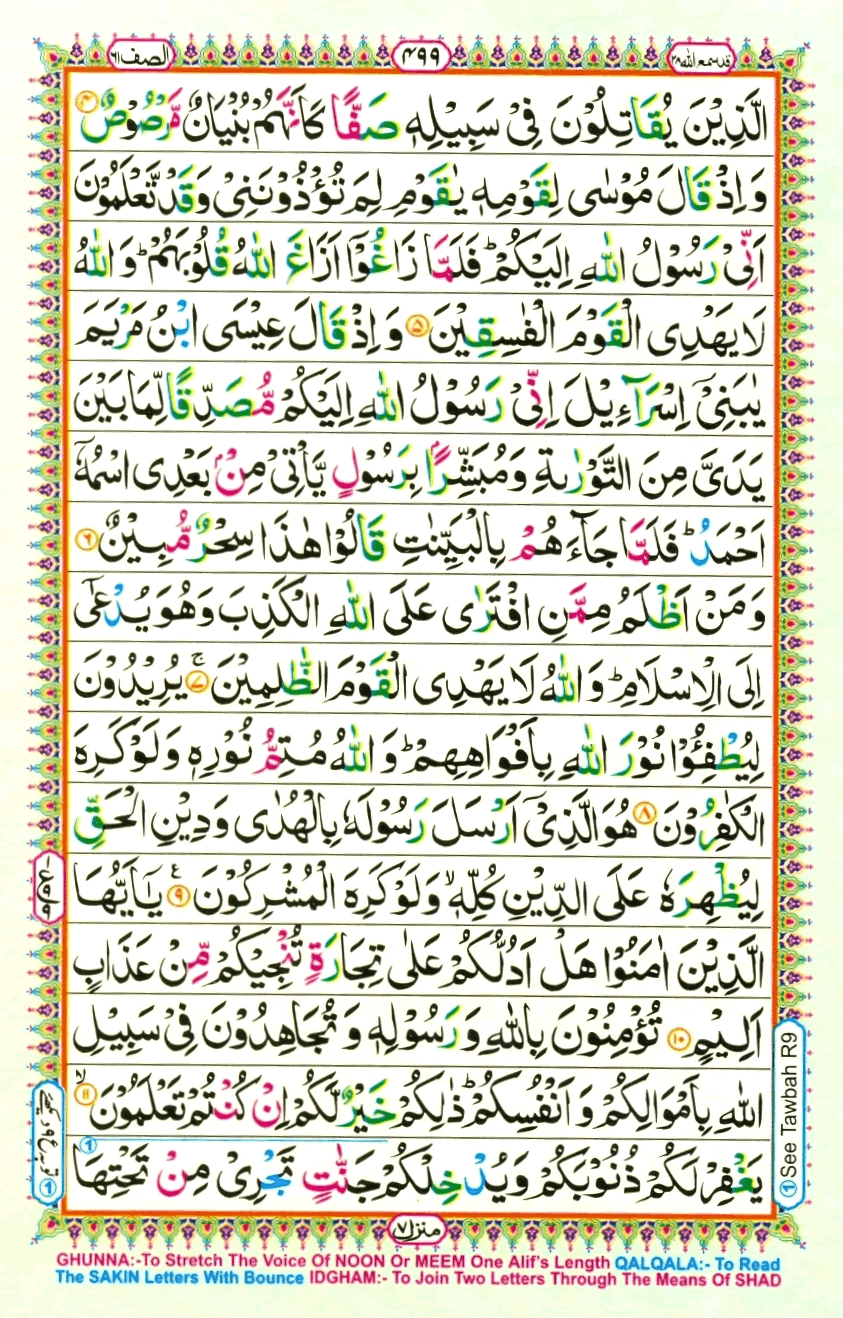 قد سمع الله ٢٨
٤٩٩
الصف ٦١
الَّذِيْنَ يُقَاتِلُوْنَ فِىْ سَبِيْلِهٖ صَفًّا كَاَنَّهُمْ بُنْيَانٌ مَّرْصُوْصٌ ۴
وَاِذْ قَالَ مُوْسٰى لِقَوْمِهٖ يٰقَوْمِ لِمَ تُؤْذُوْنَنِىْ وَقَدْ تَّعْلَمُوْنَ
اَنِّىْ رَسُوْلُ اللّٰهِ اِلَيْكُمْ ؕ فَلَمَّا زَاغُوْۤا اَزَاغَ اللّٰهُ قُلُوْبَهُمْ ؕ وَاللّٰهُ
لَا يَهْدِى الْقَوْمَ الْفٰسِقِيْنَ ۵ وَاِذْ قَالَ عِيْسَى ابْنُ مَرْيَمَ
يٰبَنِىْۤ اِسْرَآءِيْلَ اِنِّىْ رَسُوْلُ اللّٰهِ اِلَيْكُمْ مُّصَدِّقًا لِّمَا بَيْنَ
يَدَىَّ مِنَ التَّوْرٰىةِ وَمُبَشِّرًاۢ بِرَسُوْلٍ يَّاْتِىْ مِنْۢ بَعْدِى اسْمُهٗۤ
اَحْمَدُ ؕ فَلَمَّا جَآءَهُمْ بِالْبَيِّنٰتِ قَالُوْا هٰذَا سِحْرٌ مُّبِيْنٌ ۶
وَمَنْ اَظْلَمُ مِمَّنِ افْتَرٰى عَلَى اللّٰهِ الْكَذِبَ وَهُوَ يُدْعٰۤى
اِلَى الْاِسْلَامِ ؕ وَاللّٰهُ لَا يَهْدِى الْقَوْمَ الظّٰلِمِيْنَ ۚ ۷ يُرِيْدُوْنَ
لِيُطْفِـُٔوْا نُوْرَ اللّٰهِ بِاَفْوَاهِهِمْ ؕ وَاللّٰهُ مُتِمُّ نُوْرِهٖ وَلَوْ كَرِهَ
الْكٰفِرُوْنَ ۸ هُوَ الَّذِىْۤ اَرْسَلَ رَسُوْلَهٗ بِالْهُدٰى وَدِيْنِ الْحَقِّ
لِيُظْهِرَهٗ عَلَى الدِّيْنِ كُلِّهٖ ۙ وَلَوْ كَرِهَ الْمُشْرِكُوْنَ ۹ ع يٰۤـاَيُّهَا
الَّذِيْنَ اٰمَنُوْا هَلْ اَدُلُّكُمْ عَلٰى تِجَارَةٍ تُنْجِيْكُمْ مِّنْ عَذَابٍ
اَلِيْمٍ ۱۰ تُؤْمِنُوْنَ بِاللّٰهِ وَرَسُوْلِهٖ وَتُجَاهِدُوْنَ فِىْ سَبِيْلِ
اللّٰهِ بِاَمْوَالِكُمْ وَاَنْفُسِكُمْ ؕ ذٰلِكُمْ خَيْرٌ لَّكُمْ اِنْ كُنْتُمْ تَعْلَمُوْنَ ۙ ۱۱
يَغْفِرْ لَكُمْ ذُنُوْبَكُمْ وَيُدْخِلْكُمْ جَنّٰتٍ تَجْرِىْ مِنْ تَحْتِهَا
1
1 See Tawbah R9
منزل ۷
GHUNNA:-To Stretch The Voice Of NOON Or MEEM One Alif's Length QALQALA:- To Read
The SAKIN Letters With Bounce IDGHAM:- To Join Two Letters Through The Means Of SHAD